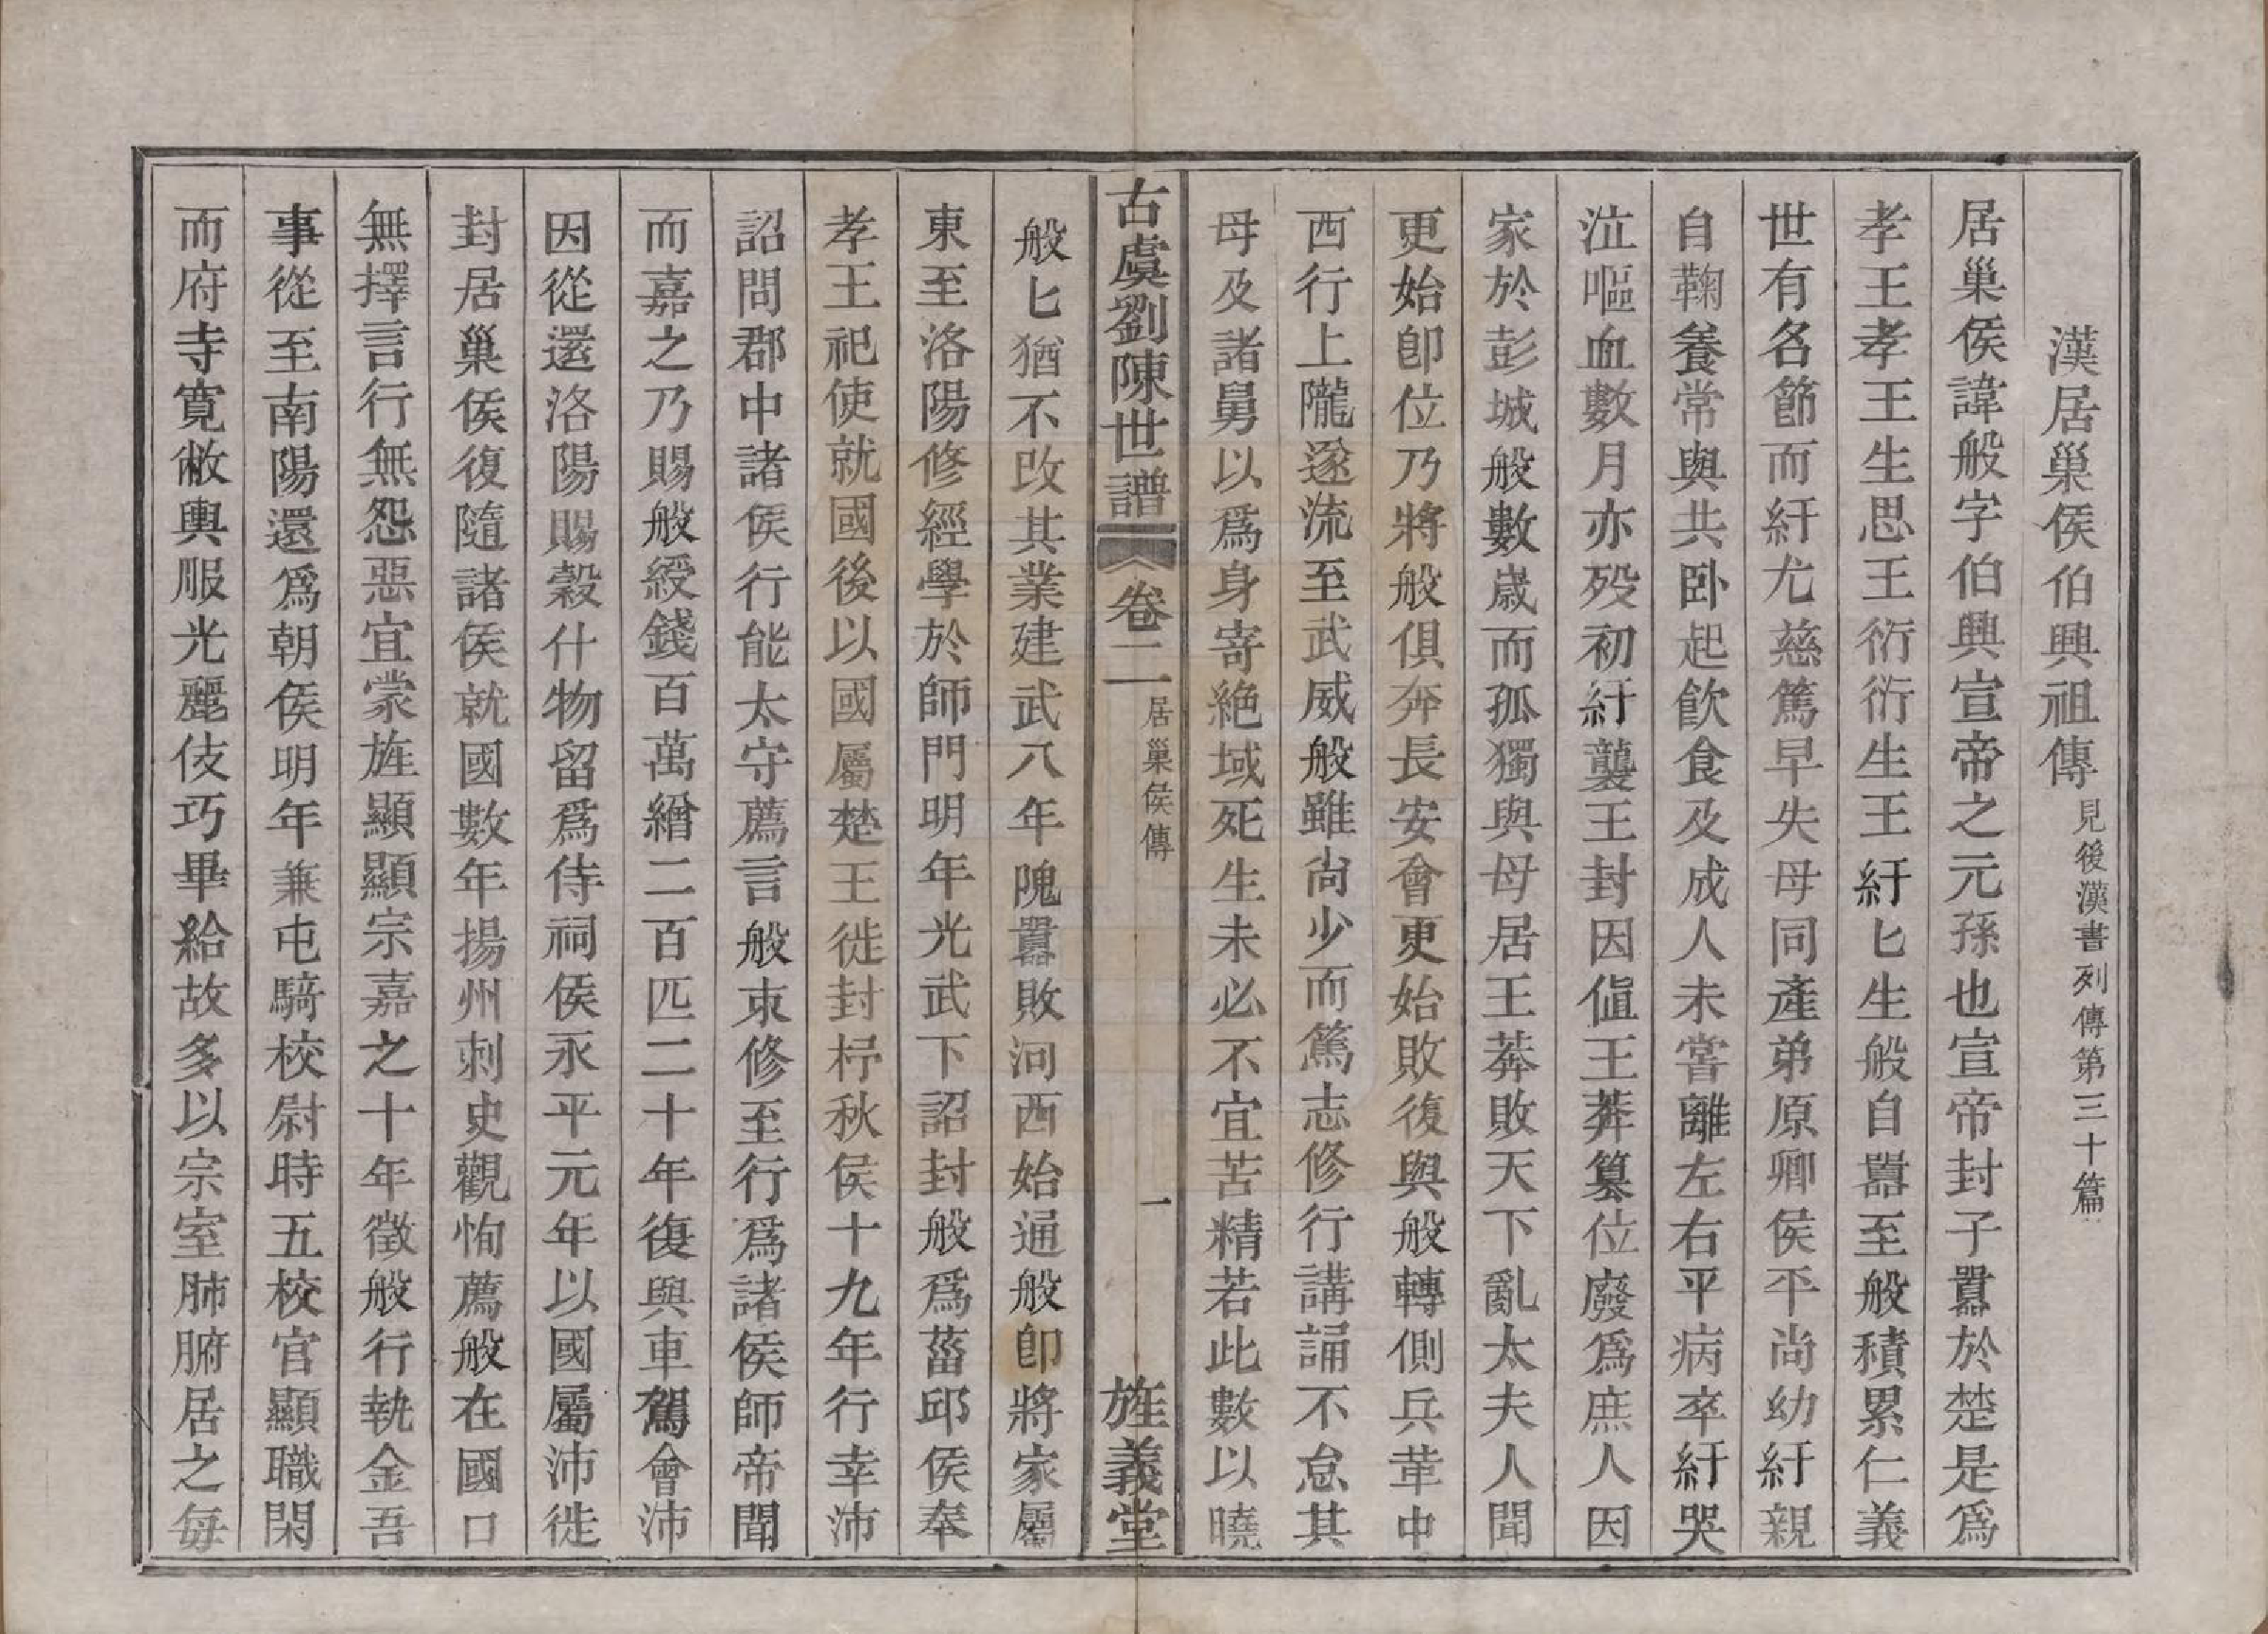 漢居巢侯伯興祖傳 見後漢書列傳第三十篇
居巢侯諱般字伯興宣帝之元孫也宣帝封子囂於楚是爲
孝王孝王生思王衍衍生王紆匕生般自囂至般積累仁義
世有名節而紆尤慈篤早失母同產弟原卿侯平尚幼紆親
自鞠養常與共卧起飲食及成人未嘗離左右平病卒紆哭
泣嘔血數月亦歿初紆襲王封因値王莽篡位廢爲庶人因
家於彭城般數歲而孤獨與母居王莽敗天下亂太夫人聞
更始卽位乃將般俱奔長安會更始敗復與般轉側兵革中
西行上隴遂流至武威般雖尙少而篤志修行講誦不怠其
母及諸舅以爲身寄絶域死生未必不宜苦精若此數以曉
古虞劉陳世譜 卷二 居巢侯傳 一 旌義堂
般匕猶不改其業建武八年隗囂敗河西始通般卽將家屬
東至洛陽修經學於師門明年光武下詔封般爲菑邱侯奉
孝王祀使就國後以國屬楚王徙封杼秋侯十九年行幸沛
詔問郡中諸侯行能太守薦言般束修至行爲諸侯師帝聞
而嘉之乃賜般綬錢百萬繒二百匹二十年復與車駕會沛
因從還洛陽賜穀什物留爲侍祠侯永平元年以國屬沛徙
封居巢侯復隨諸侯就國數年揚州刺史觀恂薦般在國口
無擇言行無怨惡宜蒙旌顯顯宗嘉之十年徵般行執金吾
事從至南陽還爲朝侯明年兼屯騎校尉時五校官顯職閑
而府寺寬敝輿服光麗伎巧畢給故多以宗室肺腑居之每